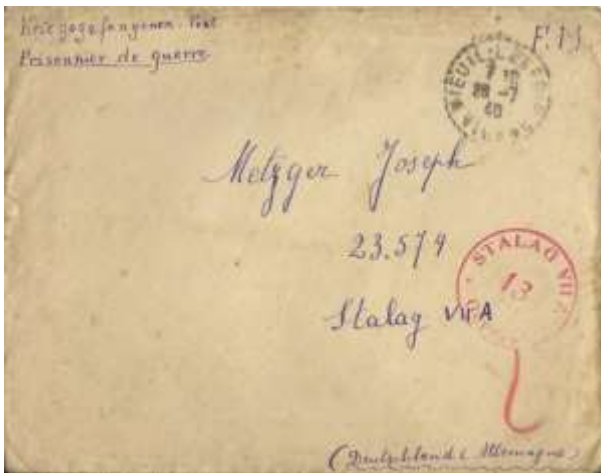 Kriegsgefangenen. Post
F.M
Prisonnier de guerre
7 10
28 -7
40
Metzger Joseph
23.579
STALAG VII A
13
Stalag VII A
(Deutschland (Allemagne)